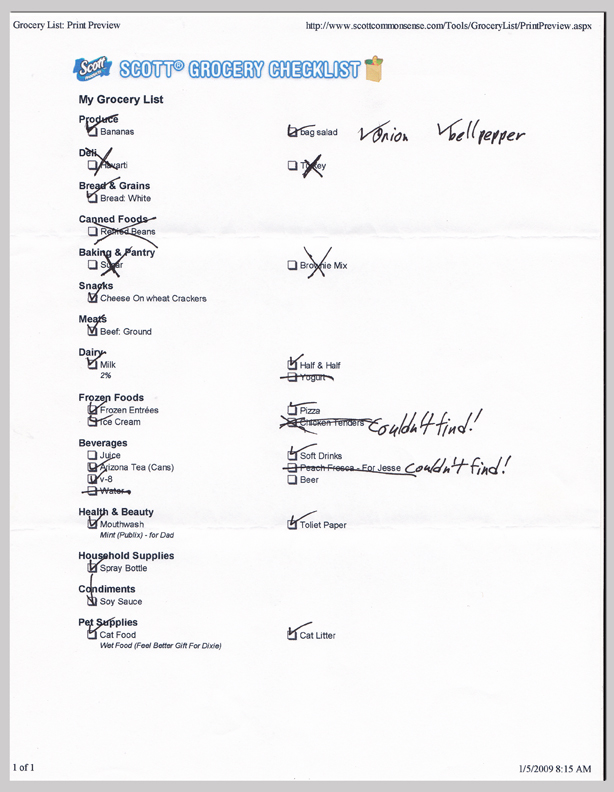 Grocery List: Print Preview http://www.scottcommonsense.com/Tools/GroceryList/PrintPreview.aspx
Scott SCOTT® GROCERY CHECKLIST
My Grocery List
Produce
Bananas bag salad ✓onion ✓bell pepper
Deli
Havarti Turkey
Bread & Grains
Bread: White
Canned Foods
Refried Beans
Baking & Pantry
Sugar Brownie Mix
Snacks
Cheese On wheat Crackers
Meats
Beef: Ground
Dairy
Milk Half & Half
2% Yogurt
Frozen Foods
Frozen Entrées Pizza
Ice Cream Chicken Tenders couldn't find!
Beverages
Juice Soft Drinks
Arizona Tea (Cans) Peach Fresca - For Jesse couldn't find!
v-8 Beer
Water
Health & Beauty
Mouthwash Toliet Paper
Mint (Publix) - for Dad
Household Supplies
Spray Bottle
Condiments
Soy Sauce
Pet Supplies
Cat Food Cat Litter
Wet Food (Feel Better Gift For Dixie)
1 of 1 1/5/2009 8:15 AM